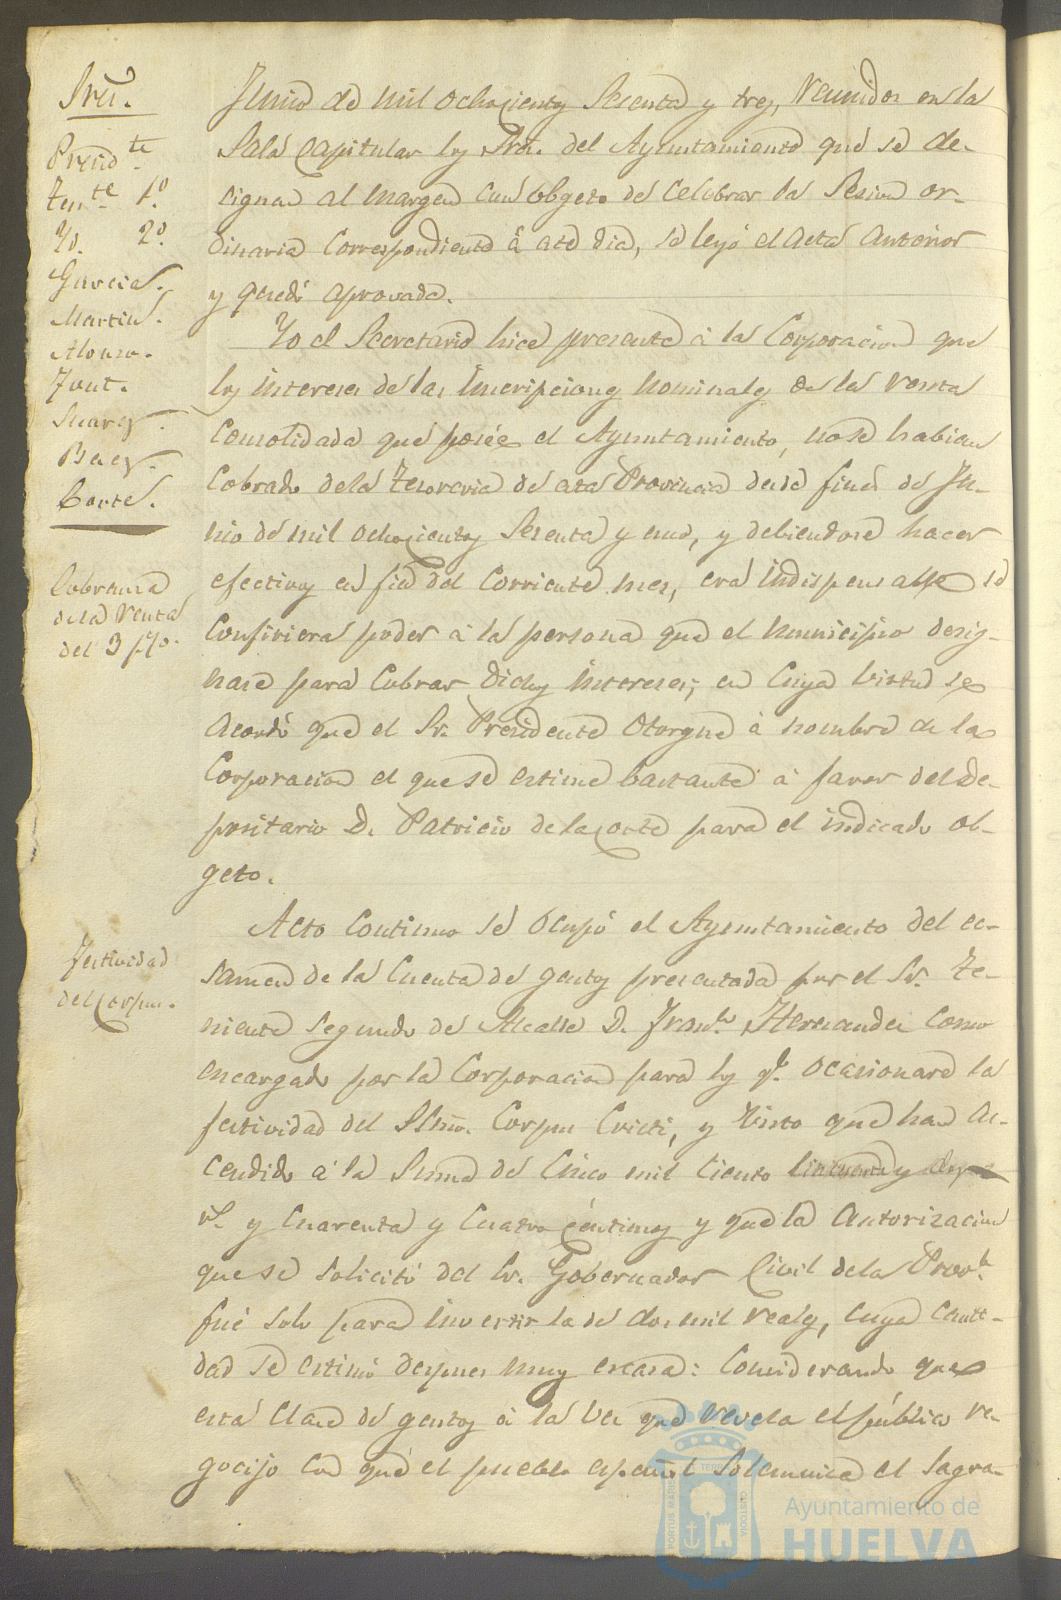 Sres.
Presid.te
Ten.te 1.º
Yd. 2.º
Garcia.
Martin.
Alonso.
Font.
Suarez.
Baez.
Corte.
Cobranza
de la renta
del 3 p%.
Festividad
del Corpus.
Junio de mil ochocientos sesenta y tres, reunidos en la
Sala Capitular los Sres. del Ayuntamiento que se de-
signan al margen con obgeto de celebrar la Sesion or-
dinaria correspondiente á este dia, se leyó el acta anterior
y quedó aprovada.
Yo el Secretario hice presente á la Corporacion que
los intereses de las inscripciones nominales de la renta
Consolidada que poseé el Ayuntamiento, no se habian
Cobrado de la Tesoreria de esta Provincia desde fines de Ju-
nio de mil ochocientos sesenta y uno, y debiendose hacer
efectivos en fin del corriente mes, era indispensable se
confiriera poder á la persona que el municipio desig-
nase para cobrar dichos intereses; en cuya virtud se
acordó que el Sr. Presidente otorgue á nombre de la
Corporacion el que se estime bastante á favor del de-
positario D. Patricio de la Corte para el indicado ob-
geto.
Acto continuo se ocupó el Ayuntamiento del ec-
samen de la cuenta de gastos presentada por el Sr. Te-
niente segundo de Alcalde D. Fran.co Hernandez como
encargado por la Corporacion para los q.e ocasionare la
festividad del SSmo. Corpus Cristi, y visto que han as-
cendido á la suma de cinco mil ciento cincuenta y
r.s y cuarenta y cuatro céntimos y que la autorizacion
que se solicitó del Sr. Gobernador Civil de la Prov.a
fué solo para invertir la de dos mil reales, cuya canti-
dad se estimó despues muy escasa: Considerando que
esta clase de gastos á la vez que revela el público re-
gocijo con que el pueblo español solemniza el Sagra-
PORTUS MARIS
ET TERRAE
CUSTODIA
Ayuntamiento de
HUELVA